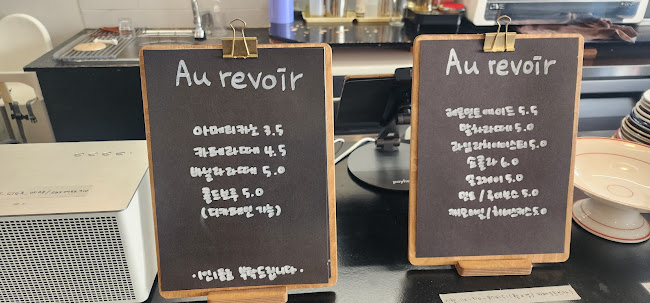 Au revoir
아메리카노 3.5
카페라떼 4.5
바닐라라떼 5.0
콜드브루 5.0
(디카페인 가능)
·1인1음료 부탁드립니다·
Au revoir
레몬민트에이드 5.5
말차라떼 5.0
5.0
쇼콜라 6.0
얼그레이 5.0
민트/루이보스 5.0
캐모마일/히비스커스 5.0